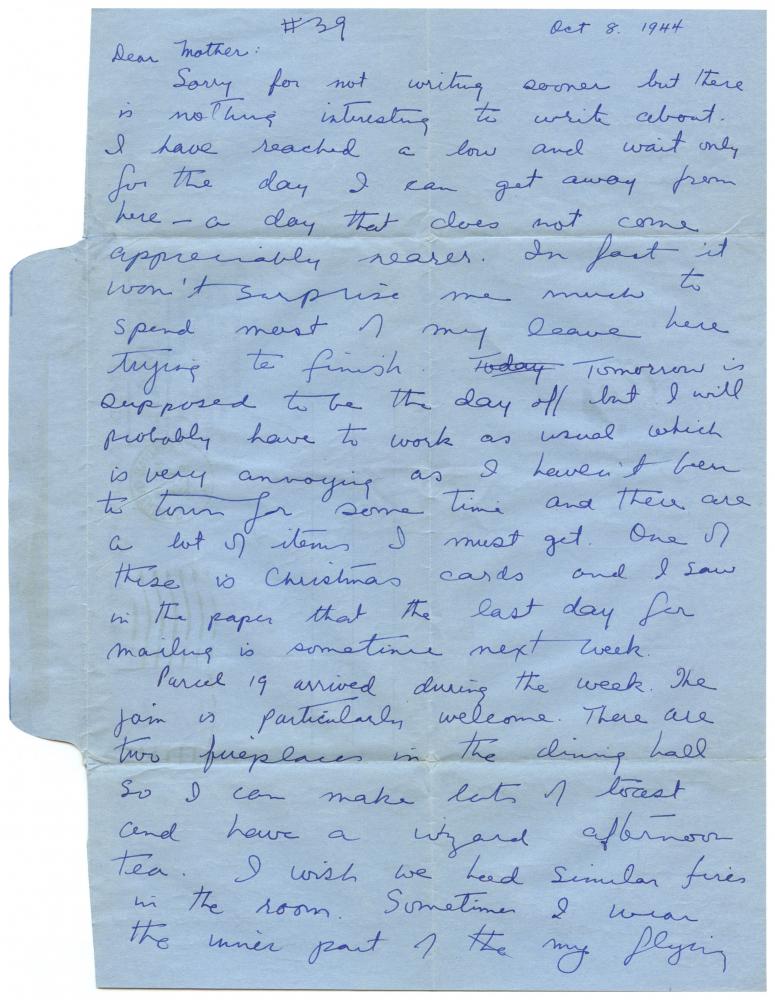 #39
Oct 8. 1944
Dear Mother:
Sorry for not writing sooner but there
is nothing interesting to write about.
I have reached a low and wait only
for the day I can get away from
here – a day that does not come
appreciably nearer. In fact it
won't surprise me much to
spend most of my leave here
trying to finish. Today Tomorrow is
supposed to be the day off but I will
probably have to work as usual which
is very annoying as I haven't been
to town for some time and there are
a lot of items I must get. One of
these is Christmas cards and I saw
in the paper that the last day for
mailing is sometime next week.
Parcel 19 arrived during the week. The
jam is particularly welcome. There are
two fireplaces in the dining hall
so I can make lots of toast
and have a wizard afternoon
tea. I wish we had similar fires
in the room. Sometimes I wear
the inner part of the my flying